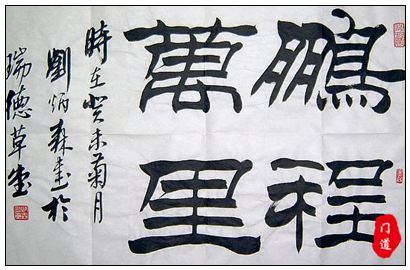 鵬程
萬里
時在癸未菊月
劉炳森書於
瑞德草堂
门道